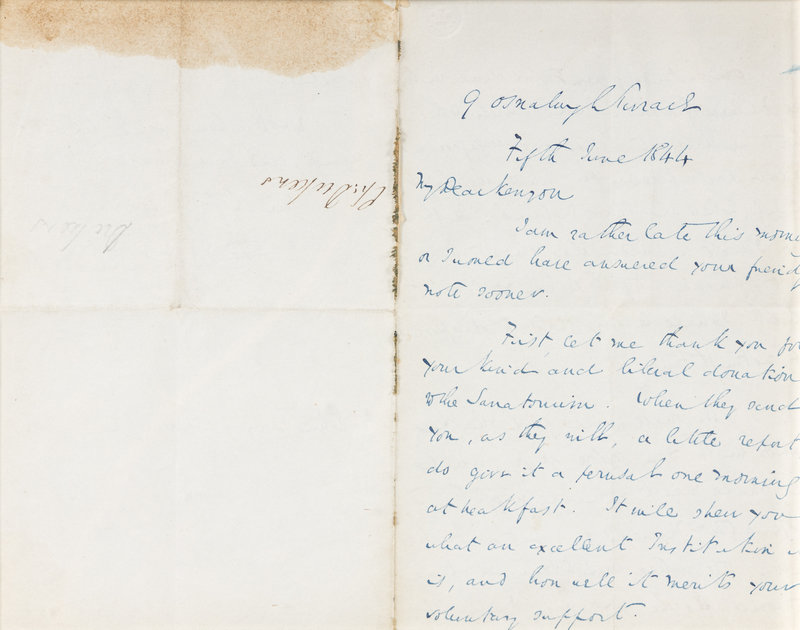 Chs. Dickens
Dickens
9 Osnaburgh Terrace
Fifth June 1844
My Dear Kenyon
I am rather late this morni
or I would have answered your friendly
note sooner.
First, let me thank you for
your kind and liberal donation
to the Sanatorium. When they send
you, as they will, a little report
do give it a perusal one morning
at breakfast. It will shew you
what an excellent Institution i
is, and how well it merits your
voluntary support.